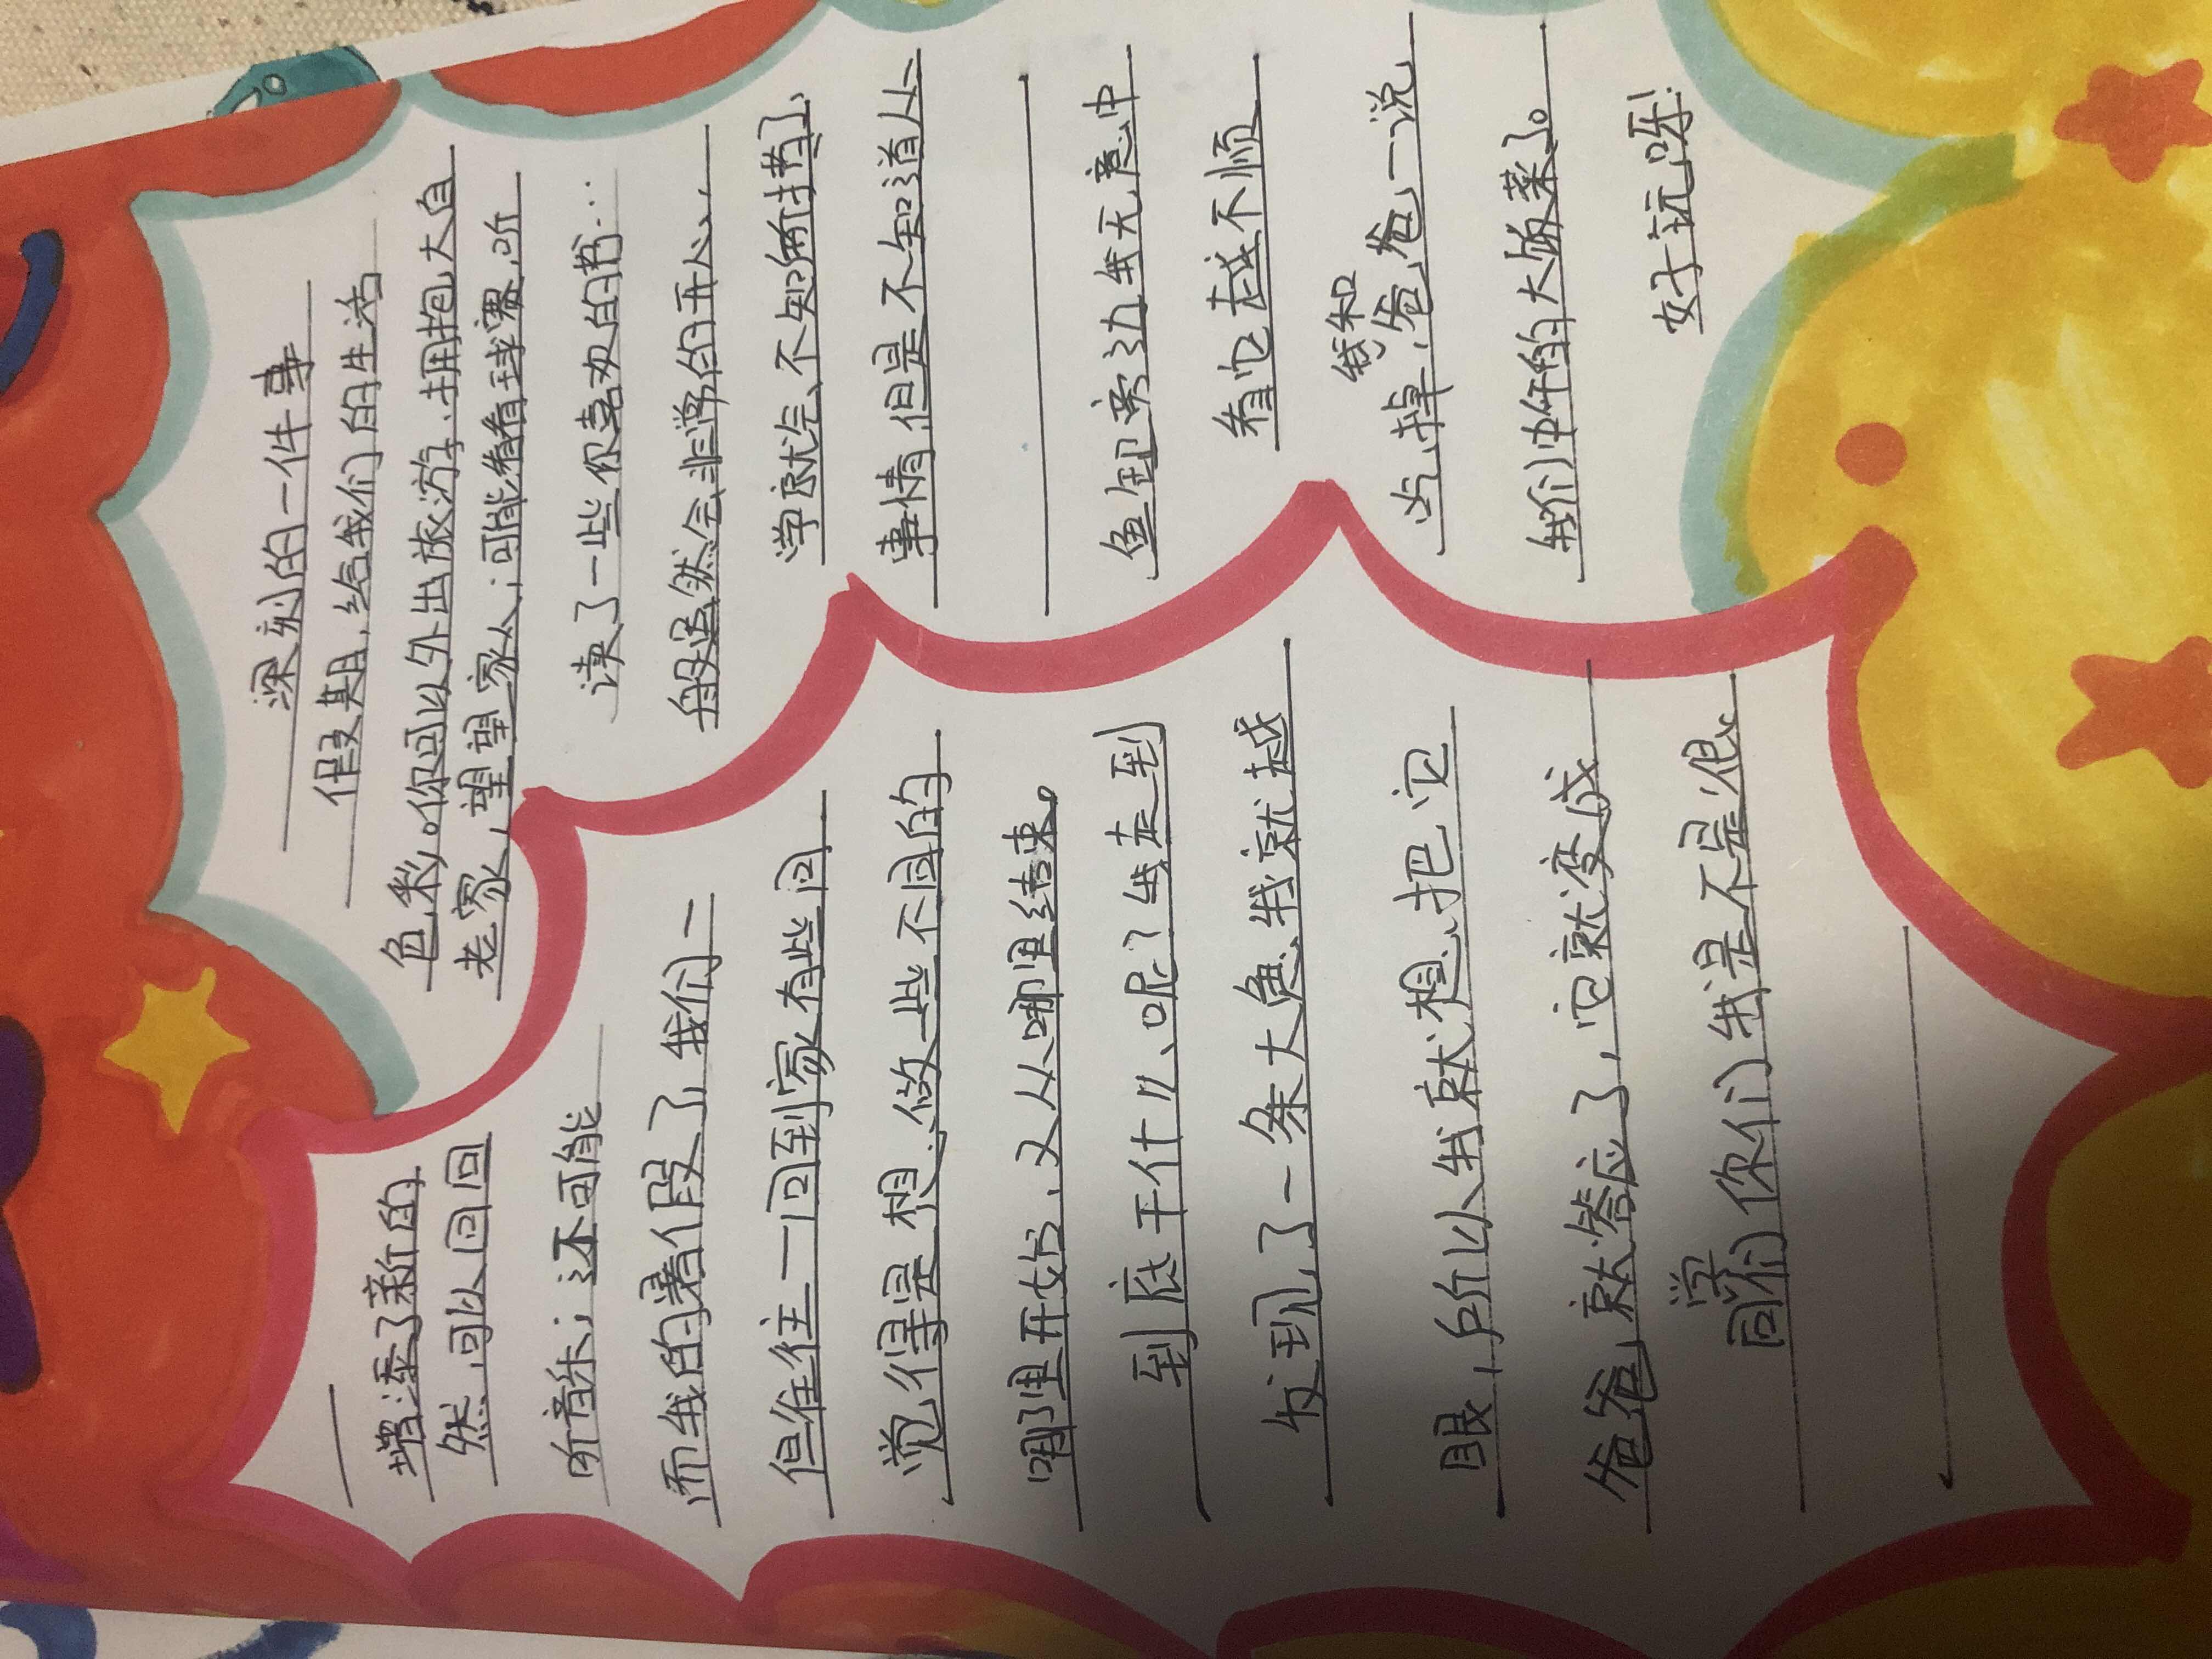 深刻的一件事
假期,给我们的生活
增添了新的色彩。你可以外出旅游,拥抱大自
然,可以回回老家,望望家人;可能看看球赛,听
听音乐;还可能读了一些你喜欢的书…
而我的暑假了,我们一般虽然会非常的开心,
但往往一回到家有些同学就会不知所措了,
觉得是想做一些不同的事情但是不知道从
哪里开始,又从哪里结束。
到底干什么呢?我走到鱼缸旁边我无意中
发现了一条大鱼我就越看它越不顺
眼,所以我就想把它吃掉,我和爸爸一说
爸爸就答应了,它就变成我们中午的大饭菜了。
同学们你们我是不是很好玩呀!